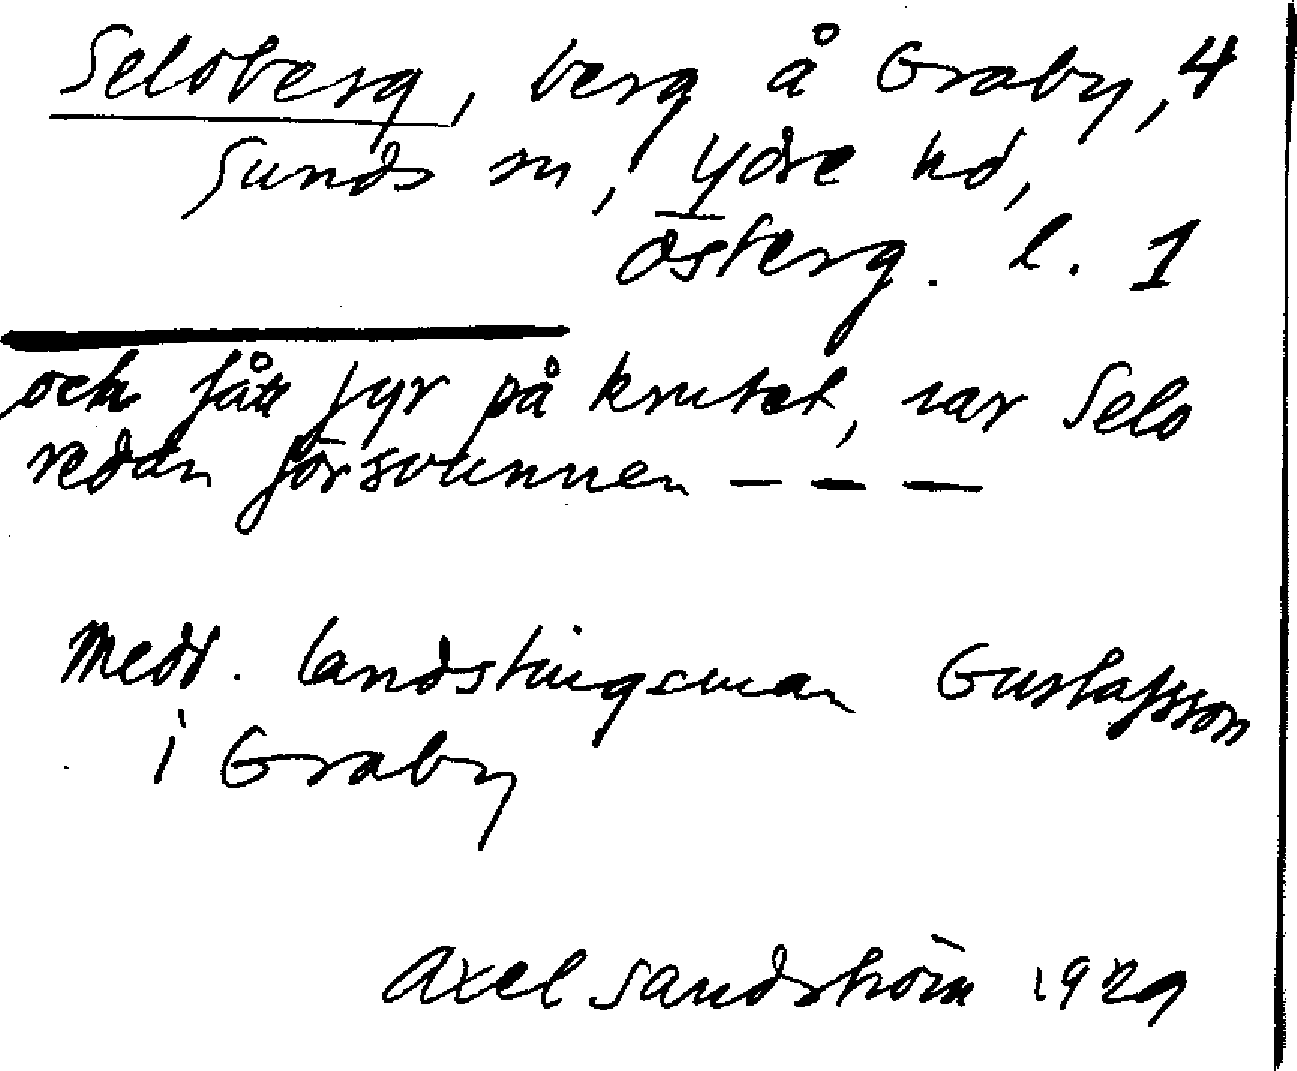 Seloberg, berg å Graby, 4
Sunds sn, Ydre hd,
Österg. l. 1
och fått fyr på krutet, var Selo
redan försvunnen – – –
Medd. landstingsman Gustafsson
i Graby
Axel Sandström 1929